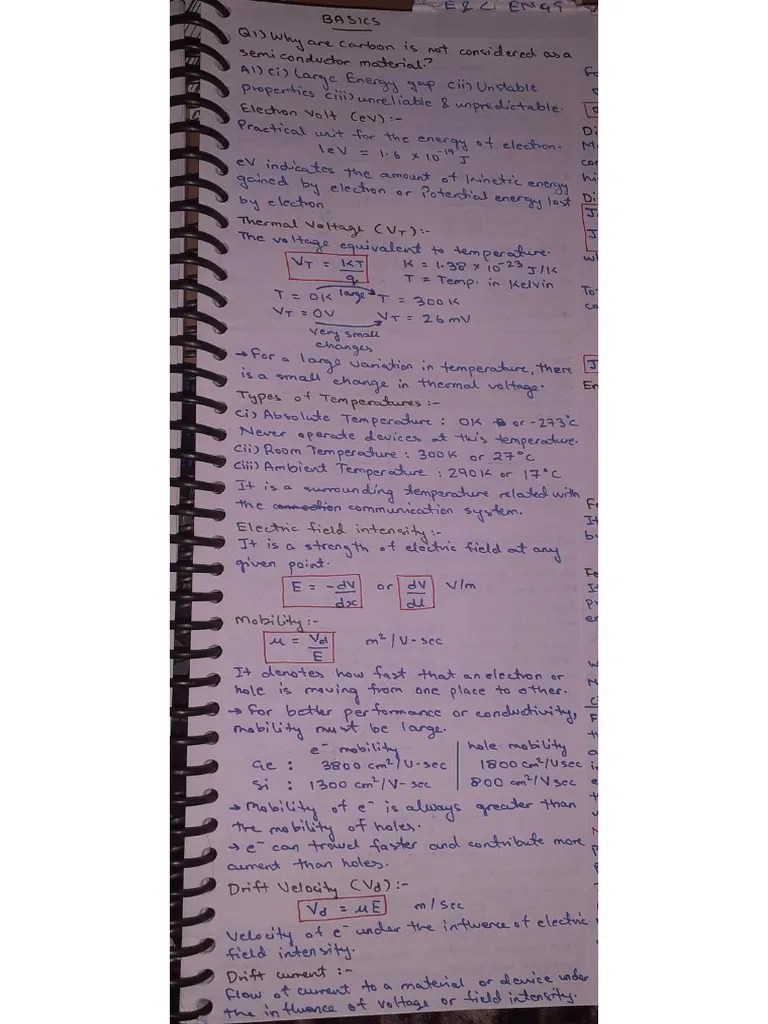 E & C ENGG
BASICS
Q1) Why are carbon is not considered as a
semiconductor material?
A1) (i) Large Energy gap (ii) Unstable
properties (iii) unreliable & unpredictable.
Electron Volt (eV) :-
Practical unit for the energy of electron.
1eV = 1.6 × 10⁻¹⁹ J
eV indicates the amount of kinetic energy
gained by electron or Potential energy lost
by electron
Thermal Voltage (VT) :-
The voltage equivalent to temperature.
VT = KT/q K = 1.38 × 10⁻²³ J/K
T = Temp. in Kelvin
T = 0K large T = 300K
VT = 0V VT = 26mV
very small
changes
→ For a large variation in temperature, there
is a small change in thermal voltage.
Types of Temperatures :-
(i) Absolute Temperature : 0K or -273°C
Never operate devices at this temperature.
(ii) Room Temperature : 300K or 27°C
(iii) Ambient Temperature : 290K or 17°C
It is a surrounding temperature related with
the connection communication system.
Electric field intensity :-
It is a strength of electric field at any
given point.
E = -dV/dx or dV/dl V/m
Mobility :-
μ = Vd/E m²/V-sec
It denotes how fast that an electron or
hole is moving from one place to other.
→ For better performance or conductivity,
mobility must be large.
e⁻ mobility hole mobility
Ge : 3800 cm²/V-sec 1800 cm²/Vsec
Si : 1300 cm²/V-sec 800 cm²/Vsec
→ Mobility of e⁻ is always greater than
the mobility of holes.
→ e⁻ can travel faster and contribute more
current than holes.
Drift Velocity (Vd) :-
Vd = μE m/sec
Velocity of e⁻ under the influence of electric
field intensity.
Drift current :-
Flow of current to a material or device under
the influence of voltage or field intensity.